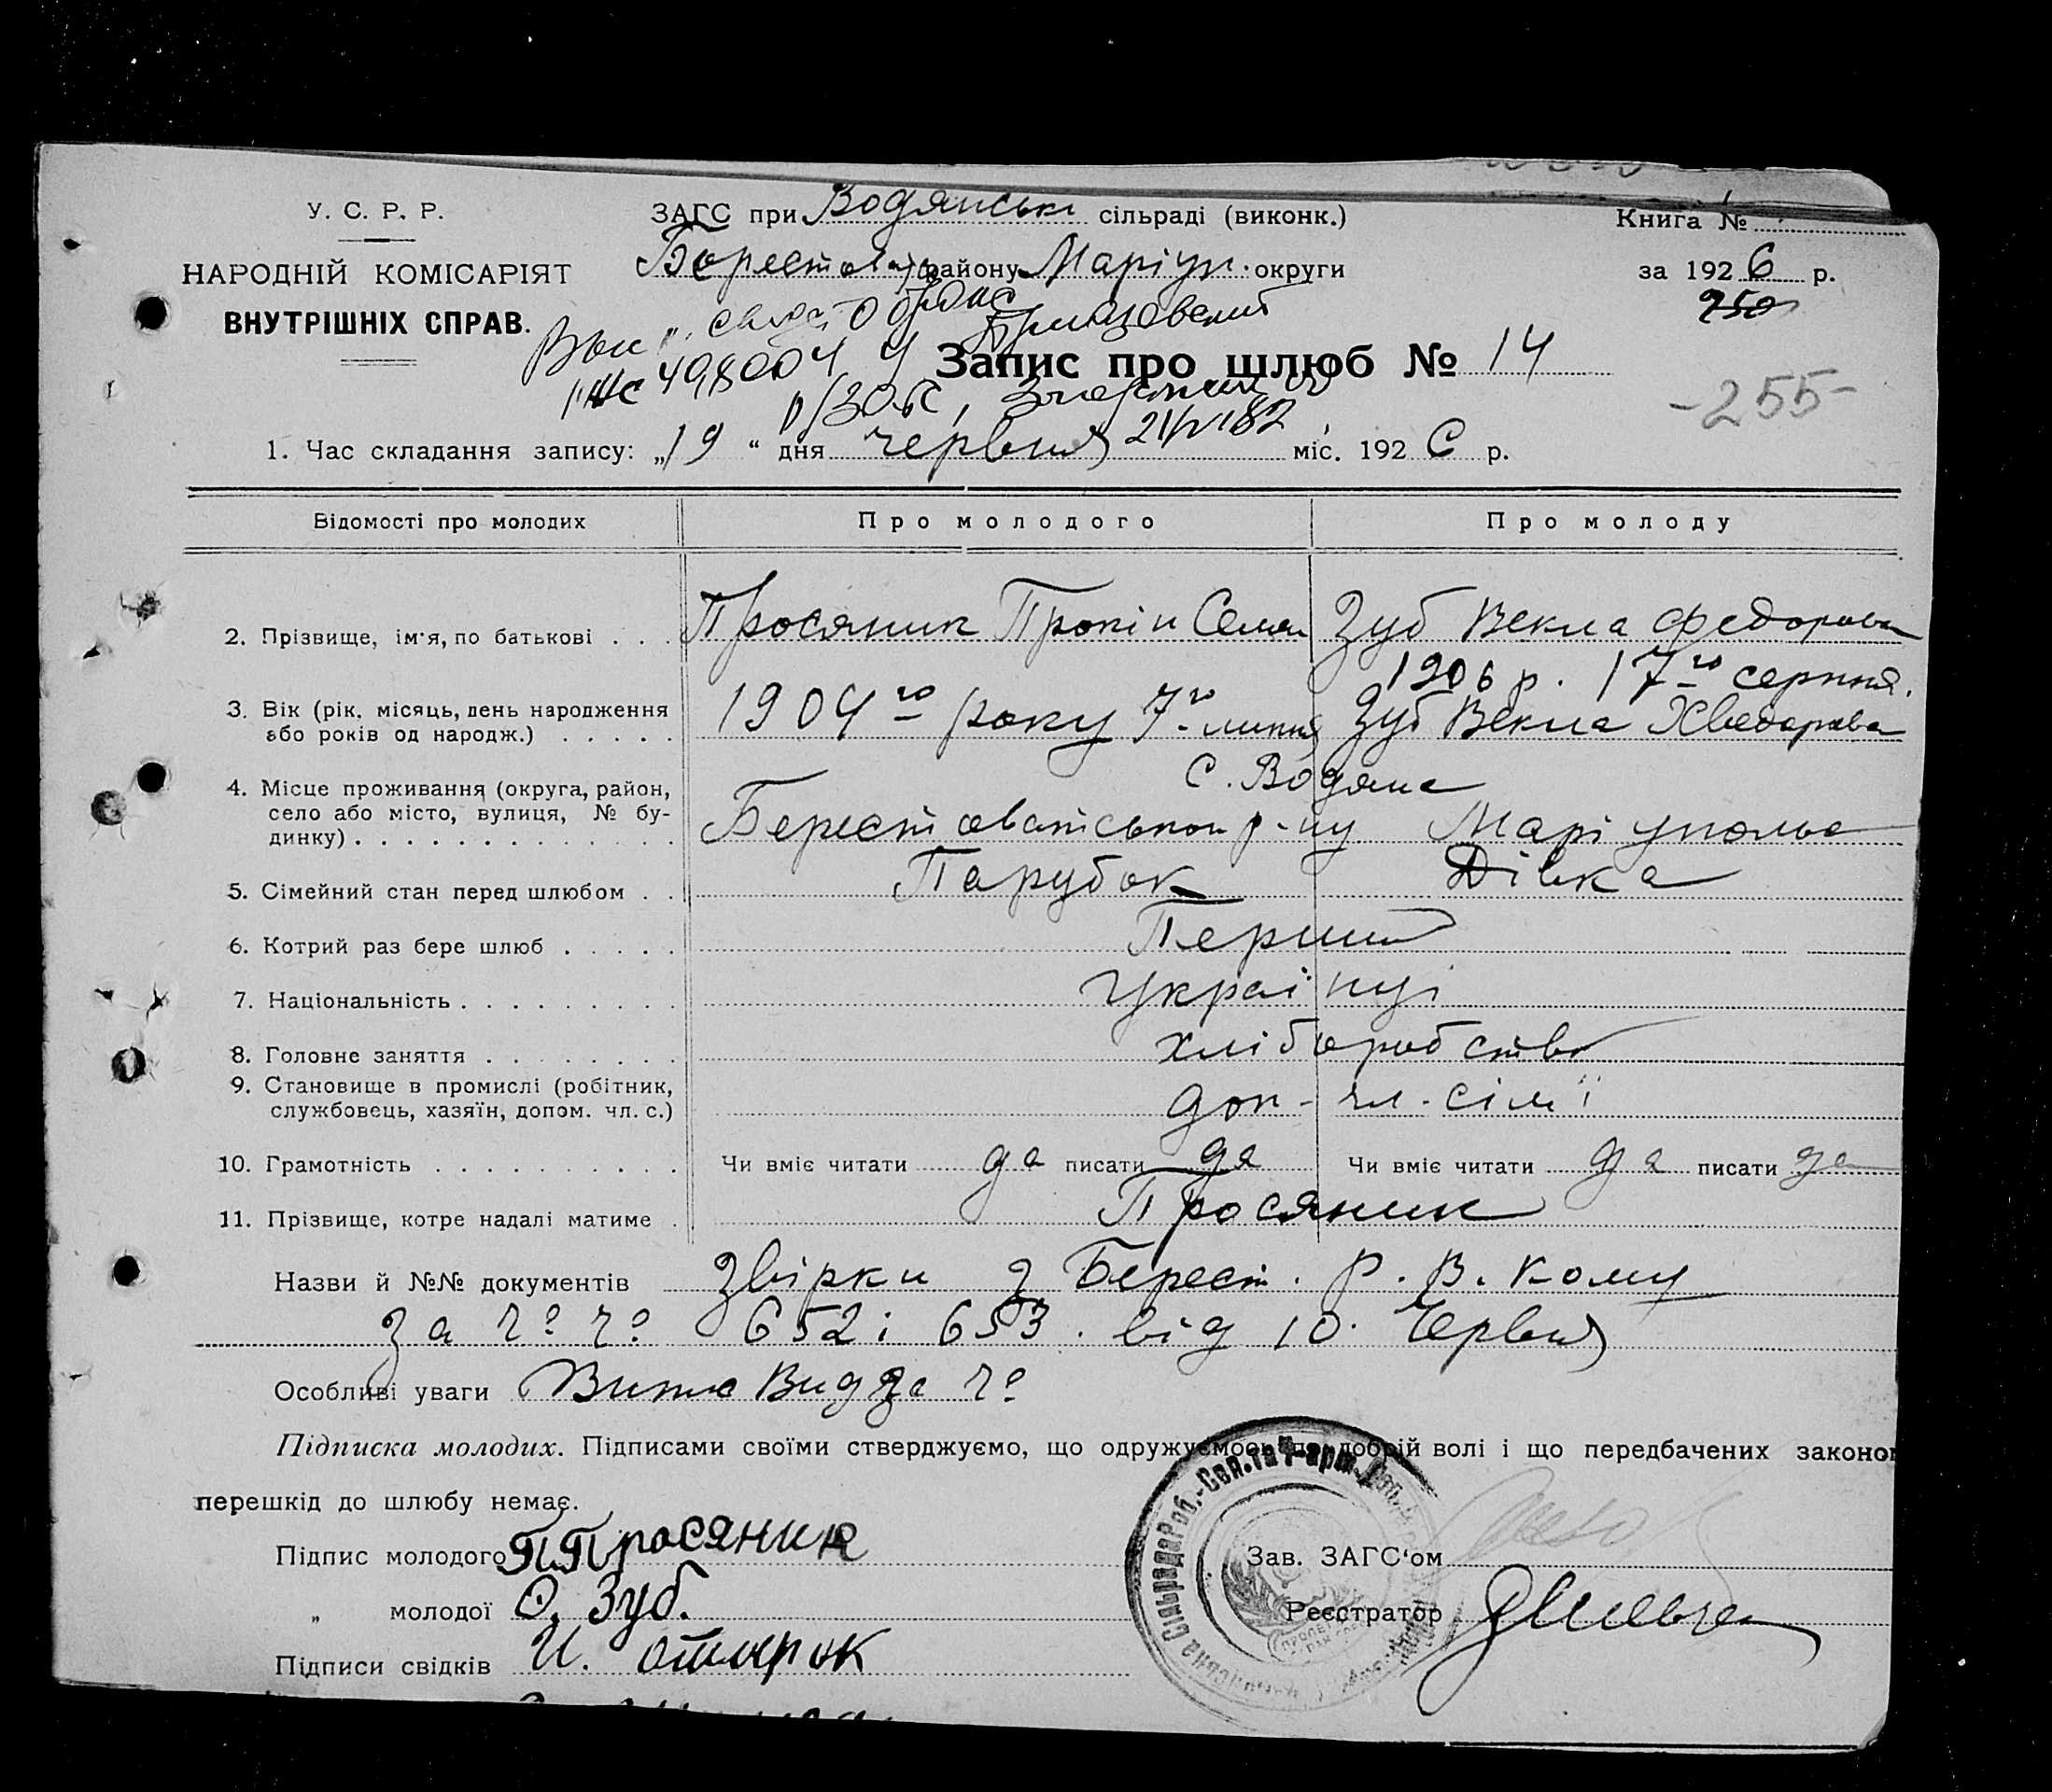 У. С. Р. Р.
НАРОДНІЙ КОМІСАРІЯТ
ВНУТРІШНІХ СПРАВ.
ЗАГС при Водянські сільраді (виконк.)
Берестов району Маріуп. округи
Книга №
за 1926 р.
250
Запис про шлюб № 14
-255-
1. Час складання запису: „19“ дня червня міс. 1926 р.
Відомості про молодих Про молодого Про молоду
2. Прізвище, ім'я, по батькові . . . Просяник Прокіп Семен Зуб Векла Федоровн
1906 р. 17го серпня.
3. Вік (рік, місяць, день народження 1904го року 7го липня Зуб Векла Хведорова
або років од народж.) . . . . .
с. Водяне
4. Місце проживання (округа, район,
село або місто, вулиця, № бу- Берестоватського р-ну Маріуполь
динку) . . . . . . . . . . . . .
5. Сімейний стан перед шлюбом . . Парубок Дівка
6. Котрий раз бере шлюб . . . . . Перший
7. Національність . . . . . . . . . Українці
8. Головне заняття . . . . . . . . хліборобство
9. Становище в промислі (робітник,
службовець, хазяїн, допом. чл. с.) доп-чл. сімї
10. Грамотність . . . . . . . . . . Чи вміє читати да писати да Чи вміє читати да писати да
11. Прізвище, котре надалі матиме . Просяник
Назви й №№ документів Звірки з Берест. Р. В. Кому
за ч? ч? 652 і 653. від 10. Червня
Особливі уваги Витяг Видда ч?
Підписка молодих. Підписами своїми стверджуємо, що одружуємось по добрій волі і що передбачених законом
перешкід до шлюбу немає.
Підпис молодого П Просяник
Зав. ЗАГС'ом
„ молодої О. Зуб.
Реєстратор
Підписи свідків И.